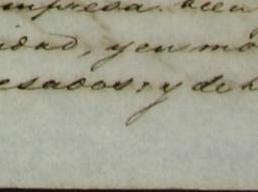 mpresa.
idad, y en mo
esados; y de h